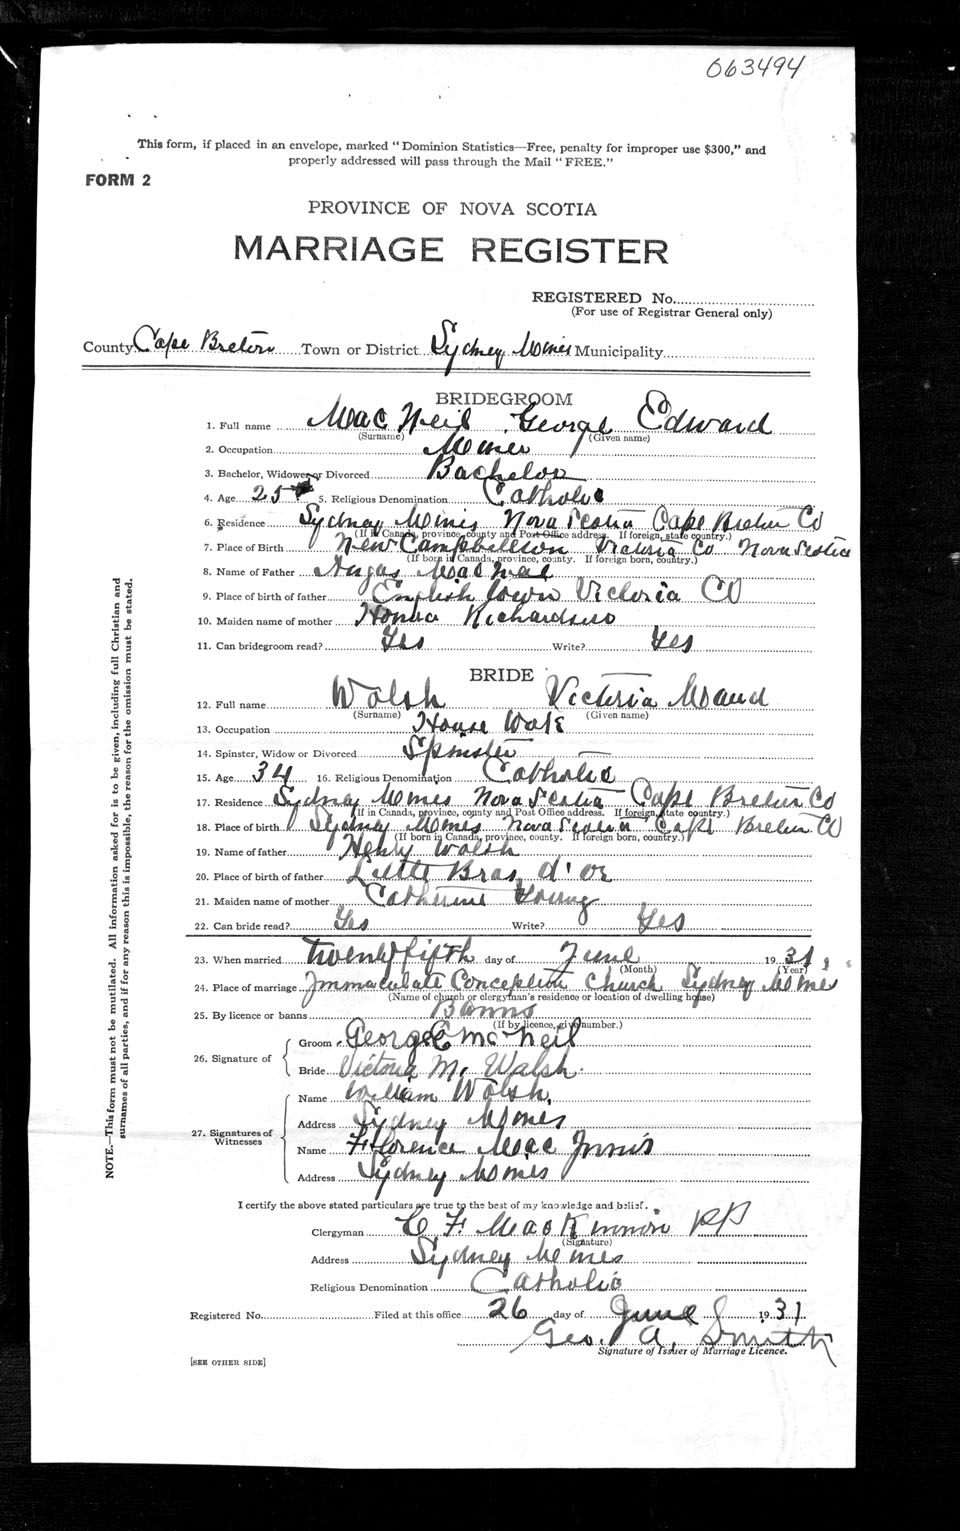 063494
This form, if placed in an envelope, marked "Dominion Statistics—Free, penalty for improper use $300," and
properly addressed will pass through the Mail "FREE."
FORM 2
PROVINCE OF NOVA SCOTIA
MARRIAGE REGISTER
REGISTERED No.
(For use of Registrar General only)
County Cape Breton Town or District Sydney Mines Municipality
BRIDEGROOM
1. Full name Mac Neil George Edward
(Surname) (Given name)
2. Occupation Miner
3. Bachelor, Widower or Divorced Bachelor
4. Age 25 5. Religious Denomination Catholic
6. Residence Sydney Mines Nova Scotia Cape Breton Co
(If in Canada, province, county and Post Office address. If foreign, state country.)
7. Place of Birth New Campbellton Victoria Co Nova Scotia
(If born in Canada, province, county. If foreign born, country.)
8. Name of Father Angus MacNeil
9. Place of birth of father English Town Victoria CO
10. Maiden name of mother Richardson
11. Can bridegroom read? Yes Write? Yes
BRIDE
12. Full name Walsh Victoria Maud
(Surname) (Given name)
13. Occupation House Work
14. Spinster, Widow or Divorced Spinster
15. Age 34 16. Religious Denomination Catholic
17. Residence Sydney Mines Nova Scotia Cape Breton Co
(If in Canada, province, county and Post Office address. If foreign, state country.)
18. Place of birth Sydney Mines Nova Scotia Cape Breton CO
(If born in Canada, province, county. If foreign born, country.)
19. Name of father Henry Walsh
20. Place of birth of father Little Bras d'or
21. Maiden name of mother Catherine Young
22. Can bride read? Yes Write? Yes
23. When married twenty fifth day of June 1931
(Month) (Year)
24. Place of marriage Immaculate Conception Church Sydney Mines
(Name of church or clergyman's residence or location of dwelling house)
25. By licence or banns Banns
(If by licence, give number.)
26. Signature of
Groom George E McNeil
Bride Victoria M. Walsh
27. Signatures of Witnesses
Name William Walsh
Address Sydney Mines
Name Florence Mac Innis
Address Sydney Mines
I certify the above stated particulars are true to the best of my knowledge and belief.
Clergyman C F. MacKinnon PP
(Signature)
Address Sydney Mines
Religious Denomination Catholic
Registered No. Filed at this office 26 day of June 1931
Geo. A. Smith
Signature of Issuer of Marriage Licence.
[SEE OTHER SIDE]
NOTE.—This form must not be mutilated. All information asked for is to be given, including full Christian and
surnames of all parties, and if for any reason this is impossible, the reason for the omission must be stated.